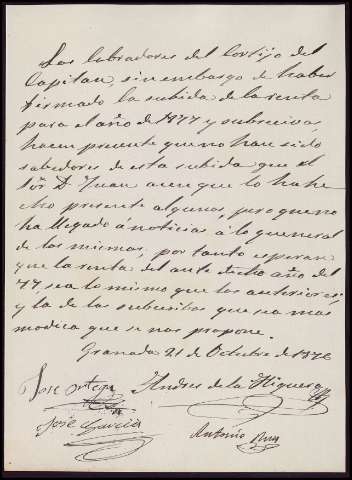 Los labradores del Cortijo del
Capitan, sin embargo de haber
firmado la subida de la renta
para el año de 1877 y subsecivos,
hacen presente que no han sido
sabedores de esta subida que el
Sõr D. Juan acen que lo ha he
cho presente algunos, pero que no
ha llegado á noticias á lo gueneral
de los mismos, por tanto esperan
que la renta del ante dicho año del
77, sea lo mismo que los anteriores;
y la de los subcesibos que sea mas
modica que se nos propone.
Granada 21 de Octubre de 1876
José Ortega Andres de la Higuera
José Garcia Antonio